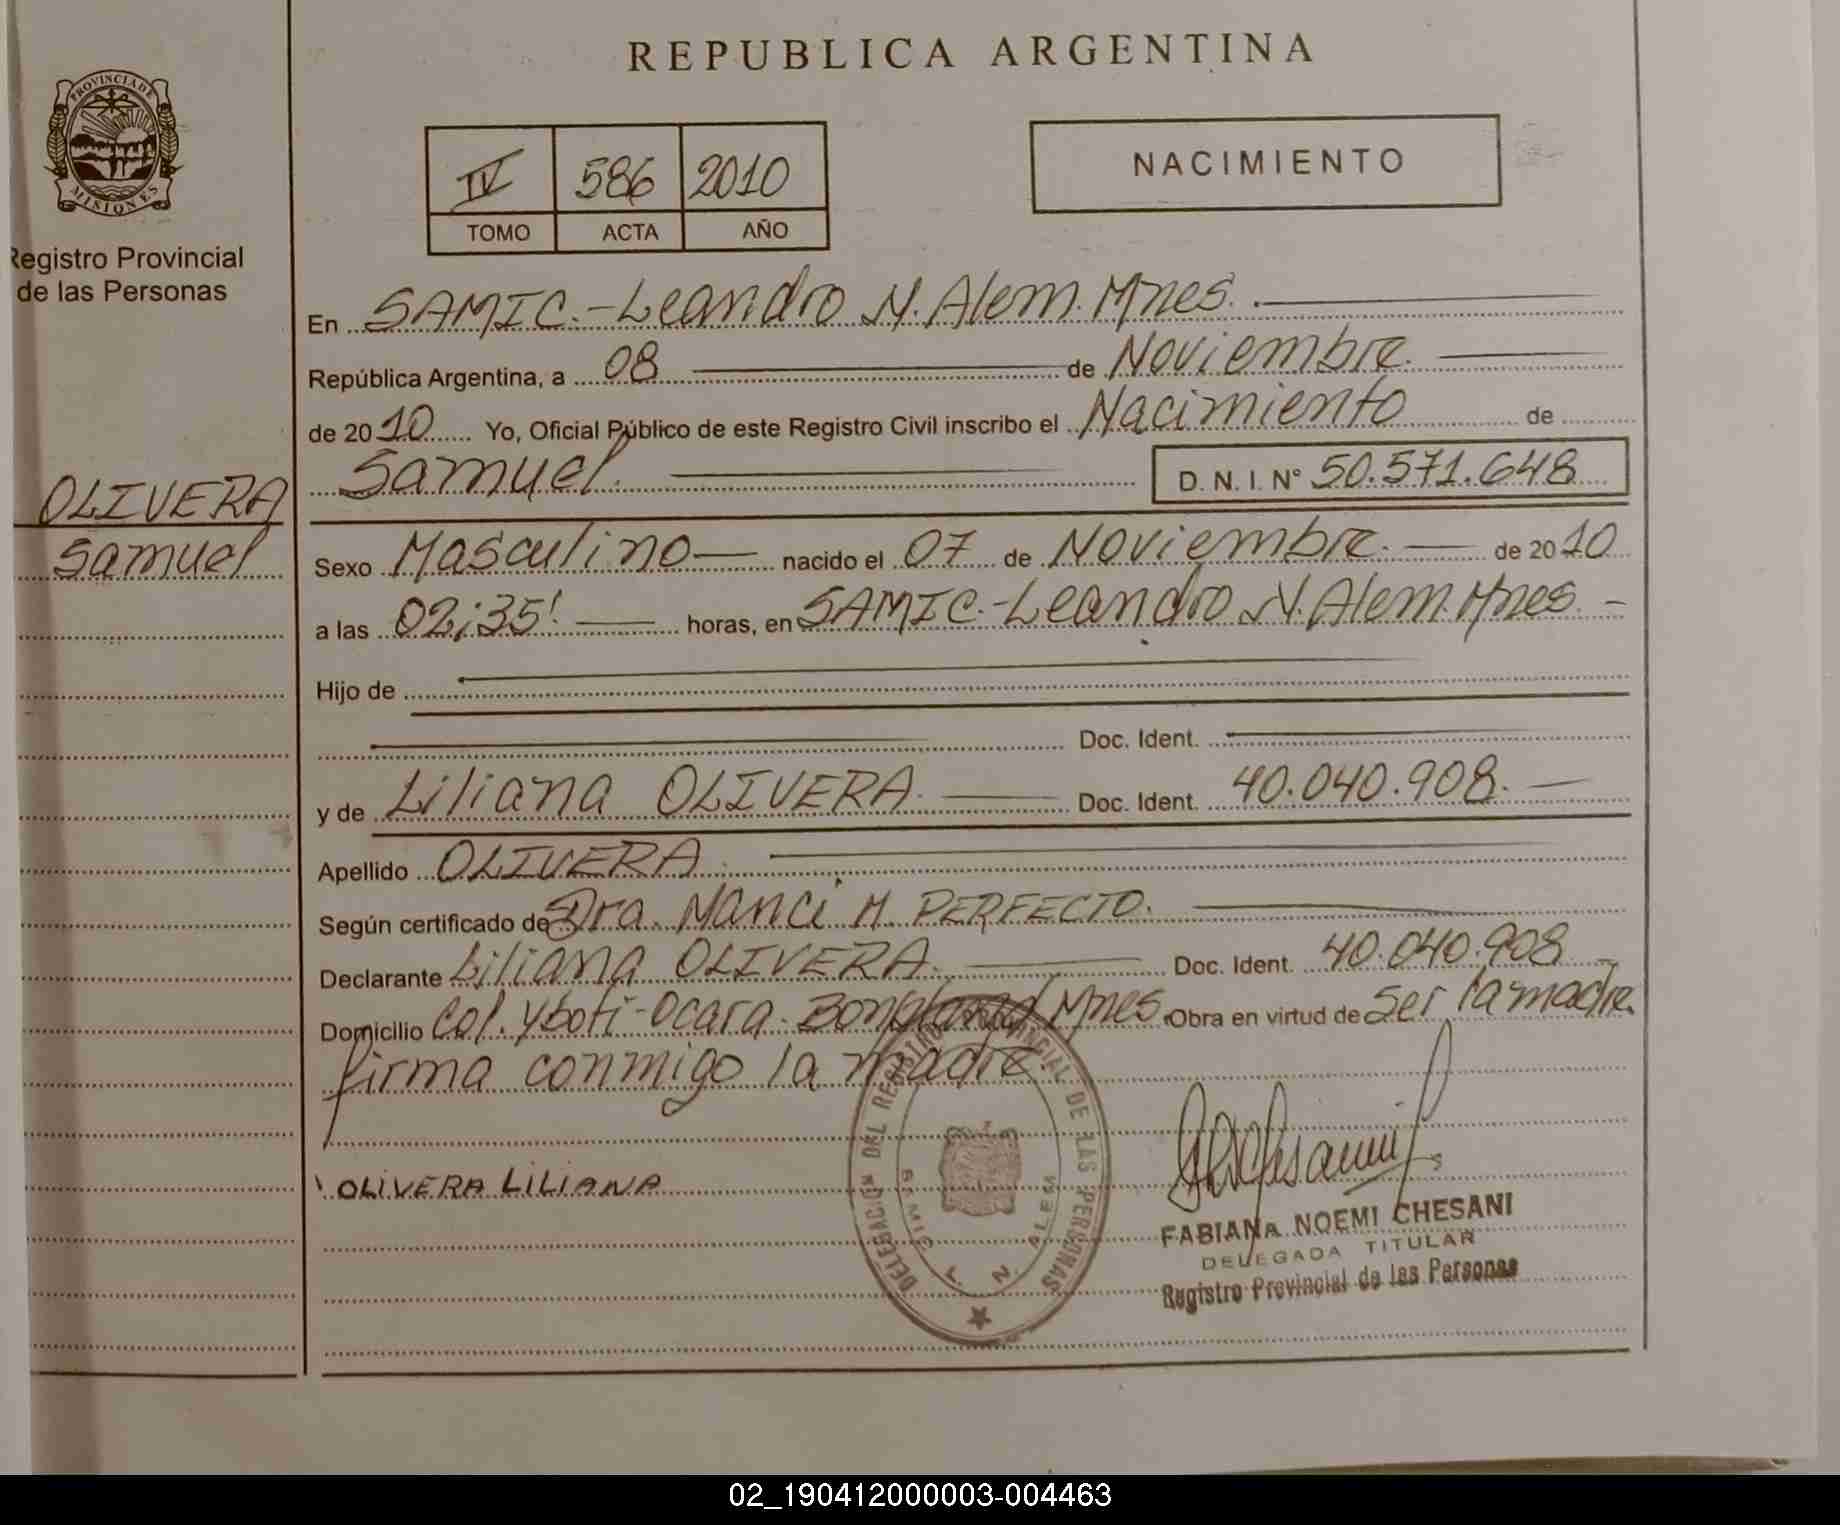 REPUBLICA ARGENTINA
PROVINCIA DE MISIONES
Registro Provincial
de las Personas
IV 586 2010
TOMO ACTA AÑO
NACIMIENTO
En SAMIC.-Leandro N. Alem. Mnes.
República Argentina, a 08 de Noviembre.
de 2010 Yo, Oficial Público de este Registro Civil inscribo el Nacimiento de
Samuel. D. N. I. N° 50.571.648
OLIVERA
Samuel
Sexo Masculino nacido el 07 de Noviembre. de 2010
a las 02;35' horas, en SAMIC.-Leandro N. Alem. Mnes.
Hijo de
Doc. Ident.
y de Liliana OLIVERA. Doc. Ident. 40.040.908.
Apellido OLIVERA.
Según certificado de Dra. Nanci M. PERFECTO.
Declarante Liliana OLIVERA. Doc. Ident. 40.040.908
Domicilio Col. Yboti-Ocara. Bonpland Mnes. Obra en virtud de Ser la madre.
firma conmigo la madre
OLIVERA LILIANA
DELEGACIÓN DEL REGISTRO PROVINCIAL DE LAS PERSONAS
SAMIC L. N. ALEM
FABIANA NOEMI CHESANI
DELEGADA TITULAR
Registro Provincial de las Personas
02_190412000003-004463